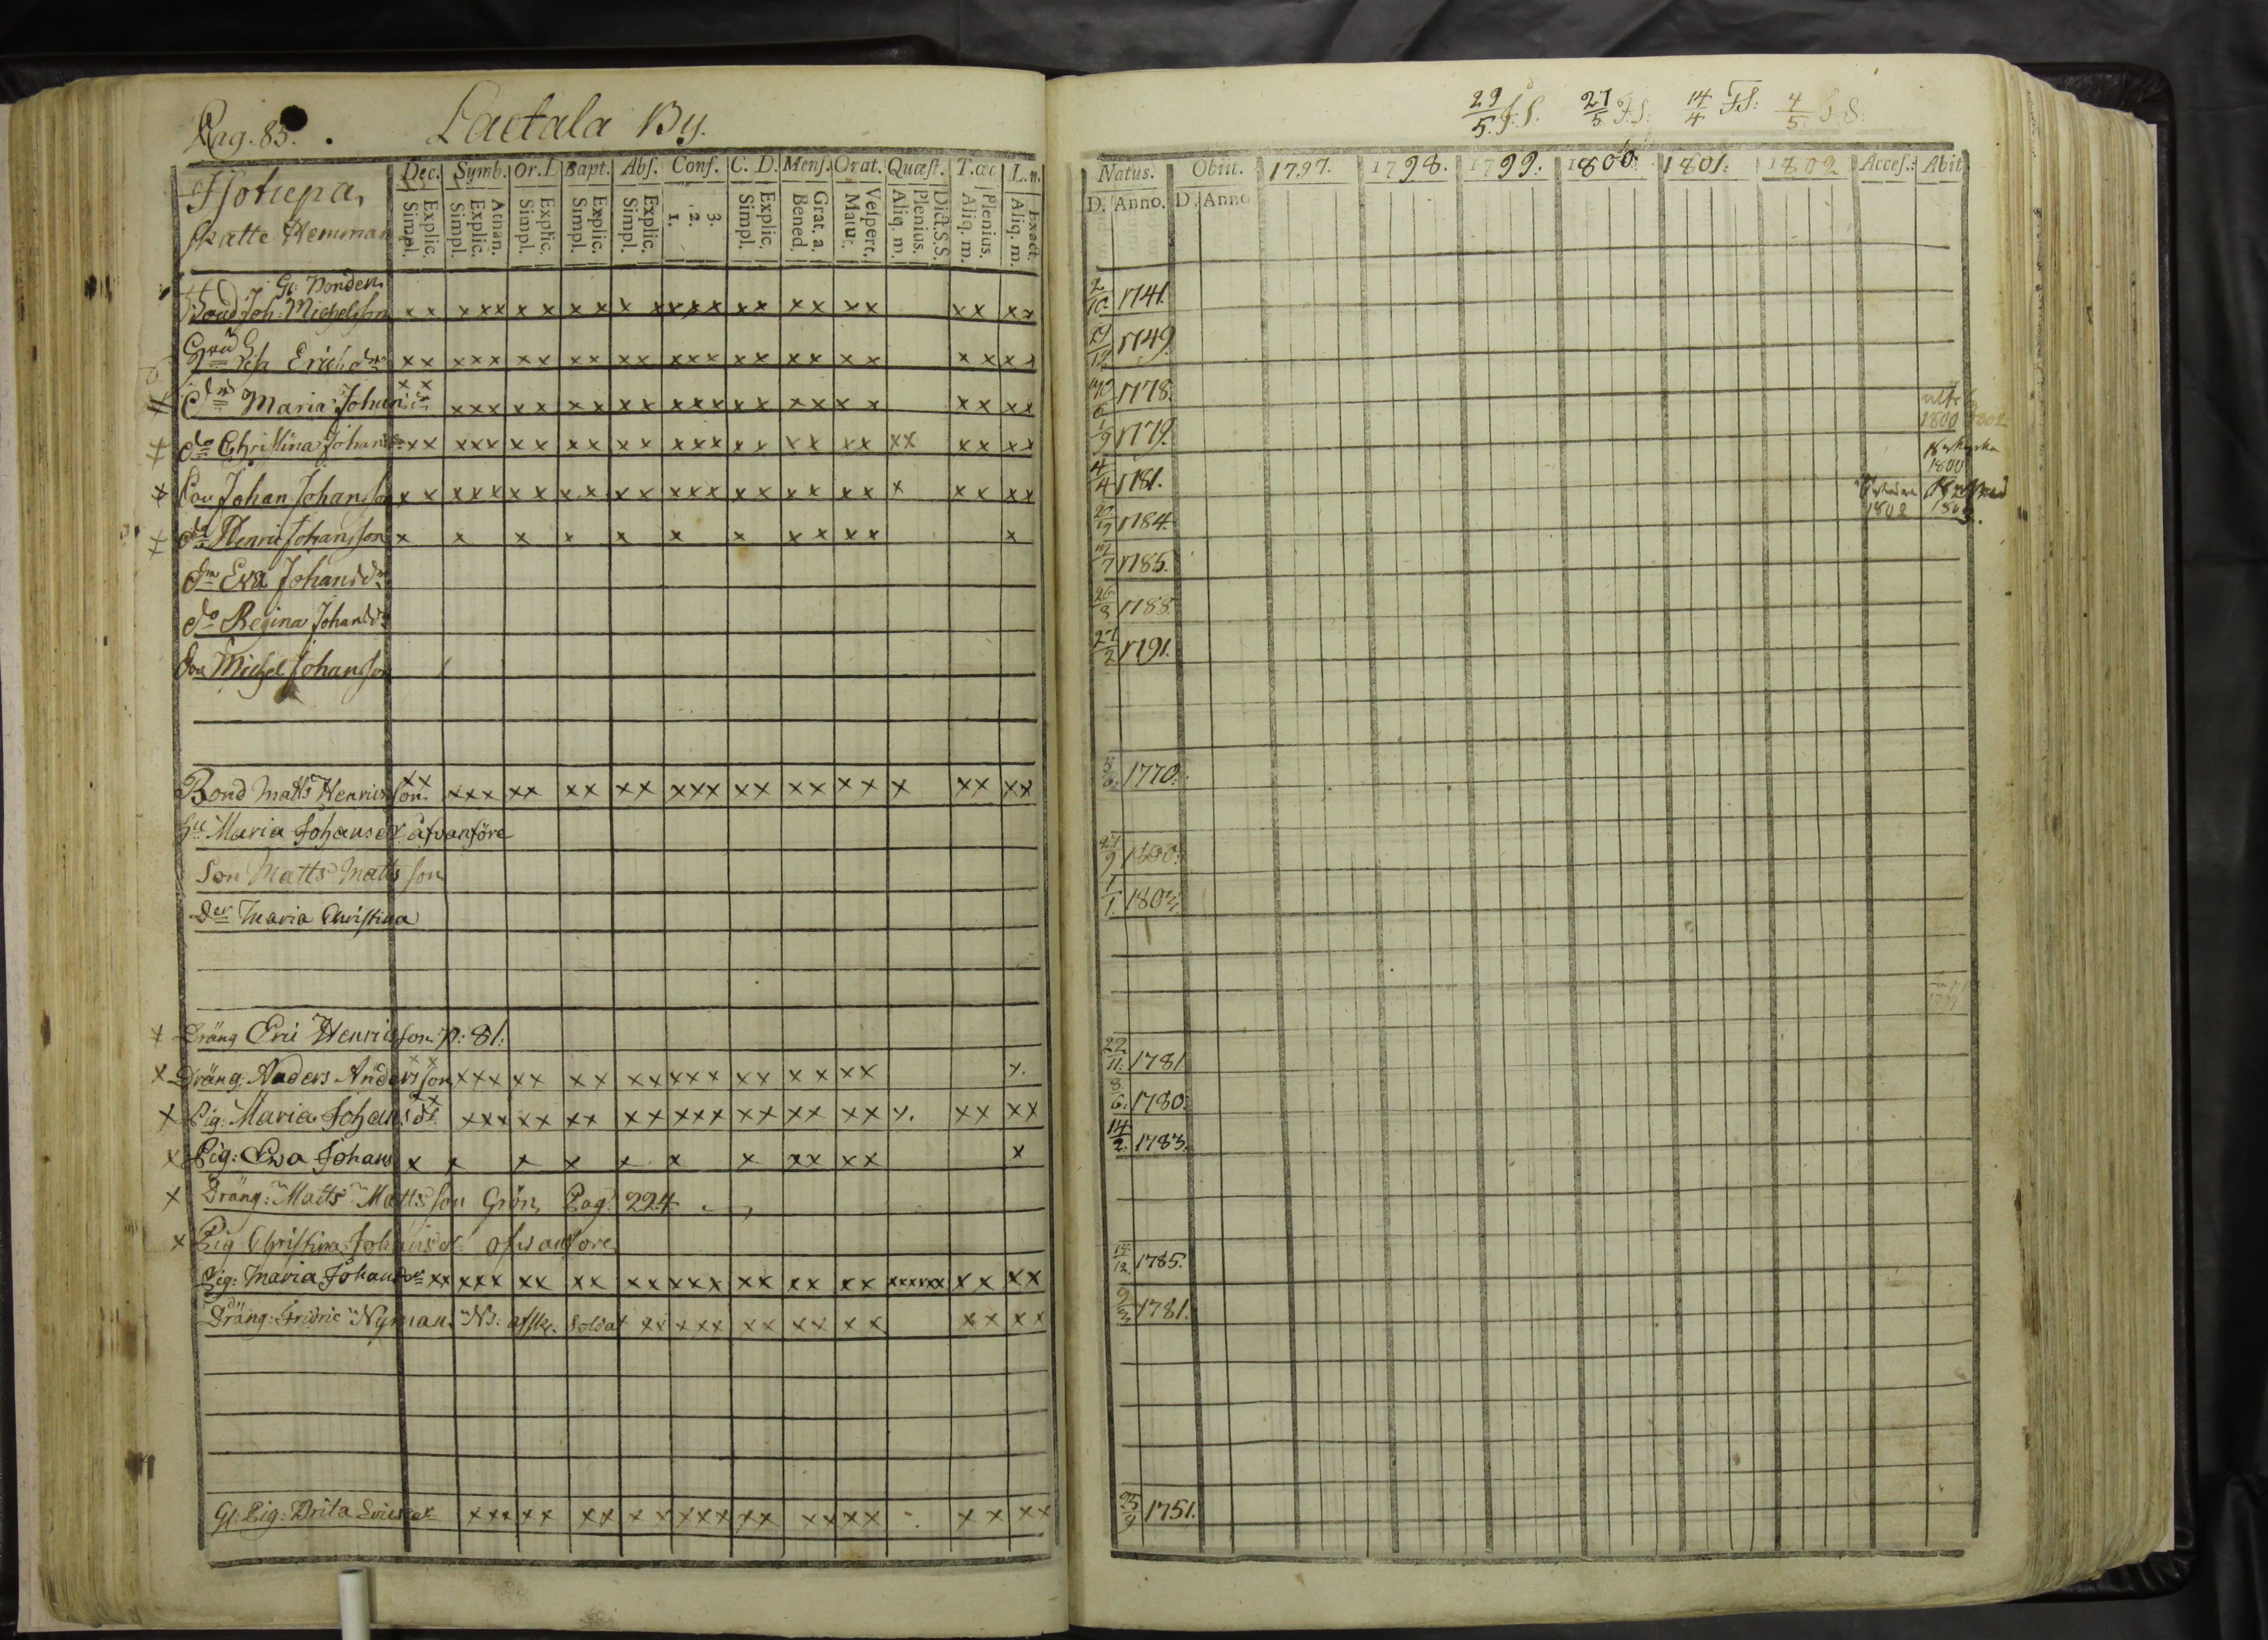 Pag. 85. Laetala By.
Isotupa,
Skatte Hemman
Dec. Symb. Or. D. Bapt. Abs. Conf. C. D. Mens. Orat. Quæst. T. œc L. n.
Explic. Simpl.
Athan. Explic. Simpl.
Explic. Simpl.
Explic. Simpl.
Explic. Simpl.
3. 2. 1.
Explic. Simpl.
Grat. a. Bened.
Vespert. Matut.
Dict.S.S. Plenius. Aliq. m.
Plenius. Aliq. m.
Exact. Aliq. m.
Gl: Bonden
Joh: Michelsson x x x x x x x x x x x x x x x x x x x x x x x x
Erichsdr x x x x x x x x x x x x x x x x x x x x x x
Maria Johansdr x x x x x x x x x x x x x x x x x x x x x x
do Christina Johansdr x x x x x x x x x x x x x x x x x x x x x x x x
Son Johan Johansson x x x x x x x x x x x x x x x x x x x x x x x
do Henric Johansson x x x x x x x x x x x x
Eva Johansdr
do Regina Johansdr
Son Michel Johansson
Bond Matts Henricsson x x x x x x x x x x x x x x x x x x x x x x x
Hu Maria Johansdr åfvanföre
Son Matts Mattsson
Der Maria Christina
Dräng Eric Henricsson p: 81.
Dräng Anders Andersson x x x x x x x x x x x x x x x x x x x
Pig: Maria Johansdr x x x x x x x x x x x x x x x x x x x x x x x
Pig: Eva Johans x x x x x x x x x x x x
Dräng: Matts Mattsson Grön, Pag. 224
Pig Christina Johansdr. ofvanföre
Pig: Maria Johansdr x x x x x x x x x x x x x x x x x x x x x x x x x x x x
Dräng: Fridric Nyman. NB: afsk. Soldat x x x x x x x x x x x x x x x
Gl: Pig: Brita Ericsdr x x x x x x x x x x x x x x x x x x x x
29/5 27/5 14/4 4/5
Natus. Obiit. 1797. 1798. 1799. 1800. 1801. 1802 Acces.: Abit.
D. Anno. D. Anno
1741.
1749.
1778.
1800
1/9 1779.
1800
4/4 1781.
1802
1784.
1785.
26/8 1788.
27/2 1791.
5/6 1770.
27/9 1800.
1/1 1803
22/11. 1781.
8/6. 1780.
14/2. 1783.
1785.
9/3 1781.
1751.